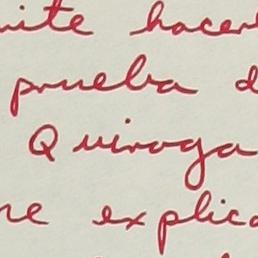 ite hacer
prueba d
Quiroga
re explica